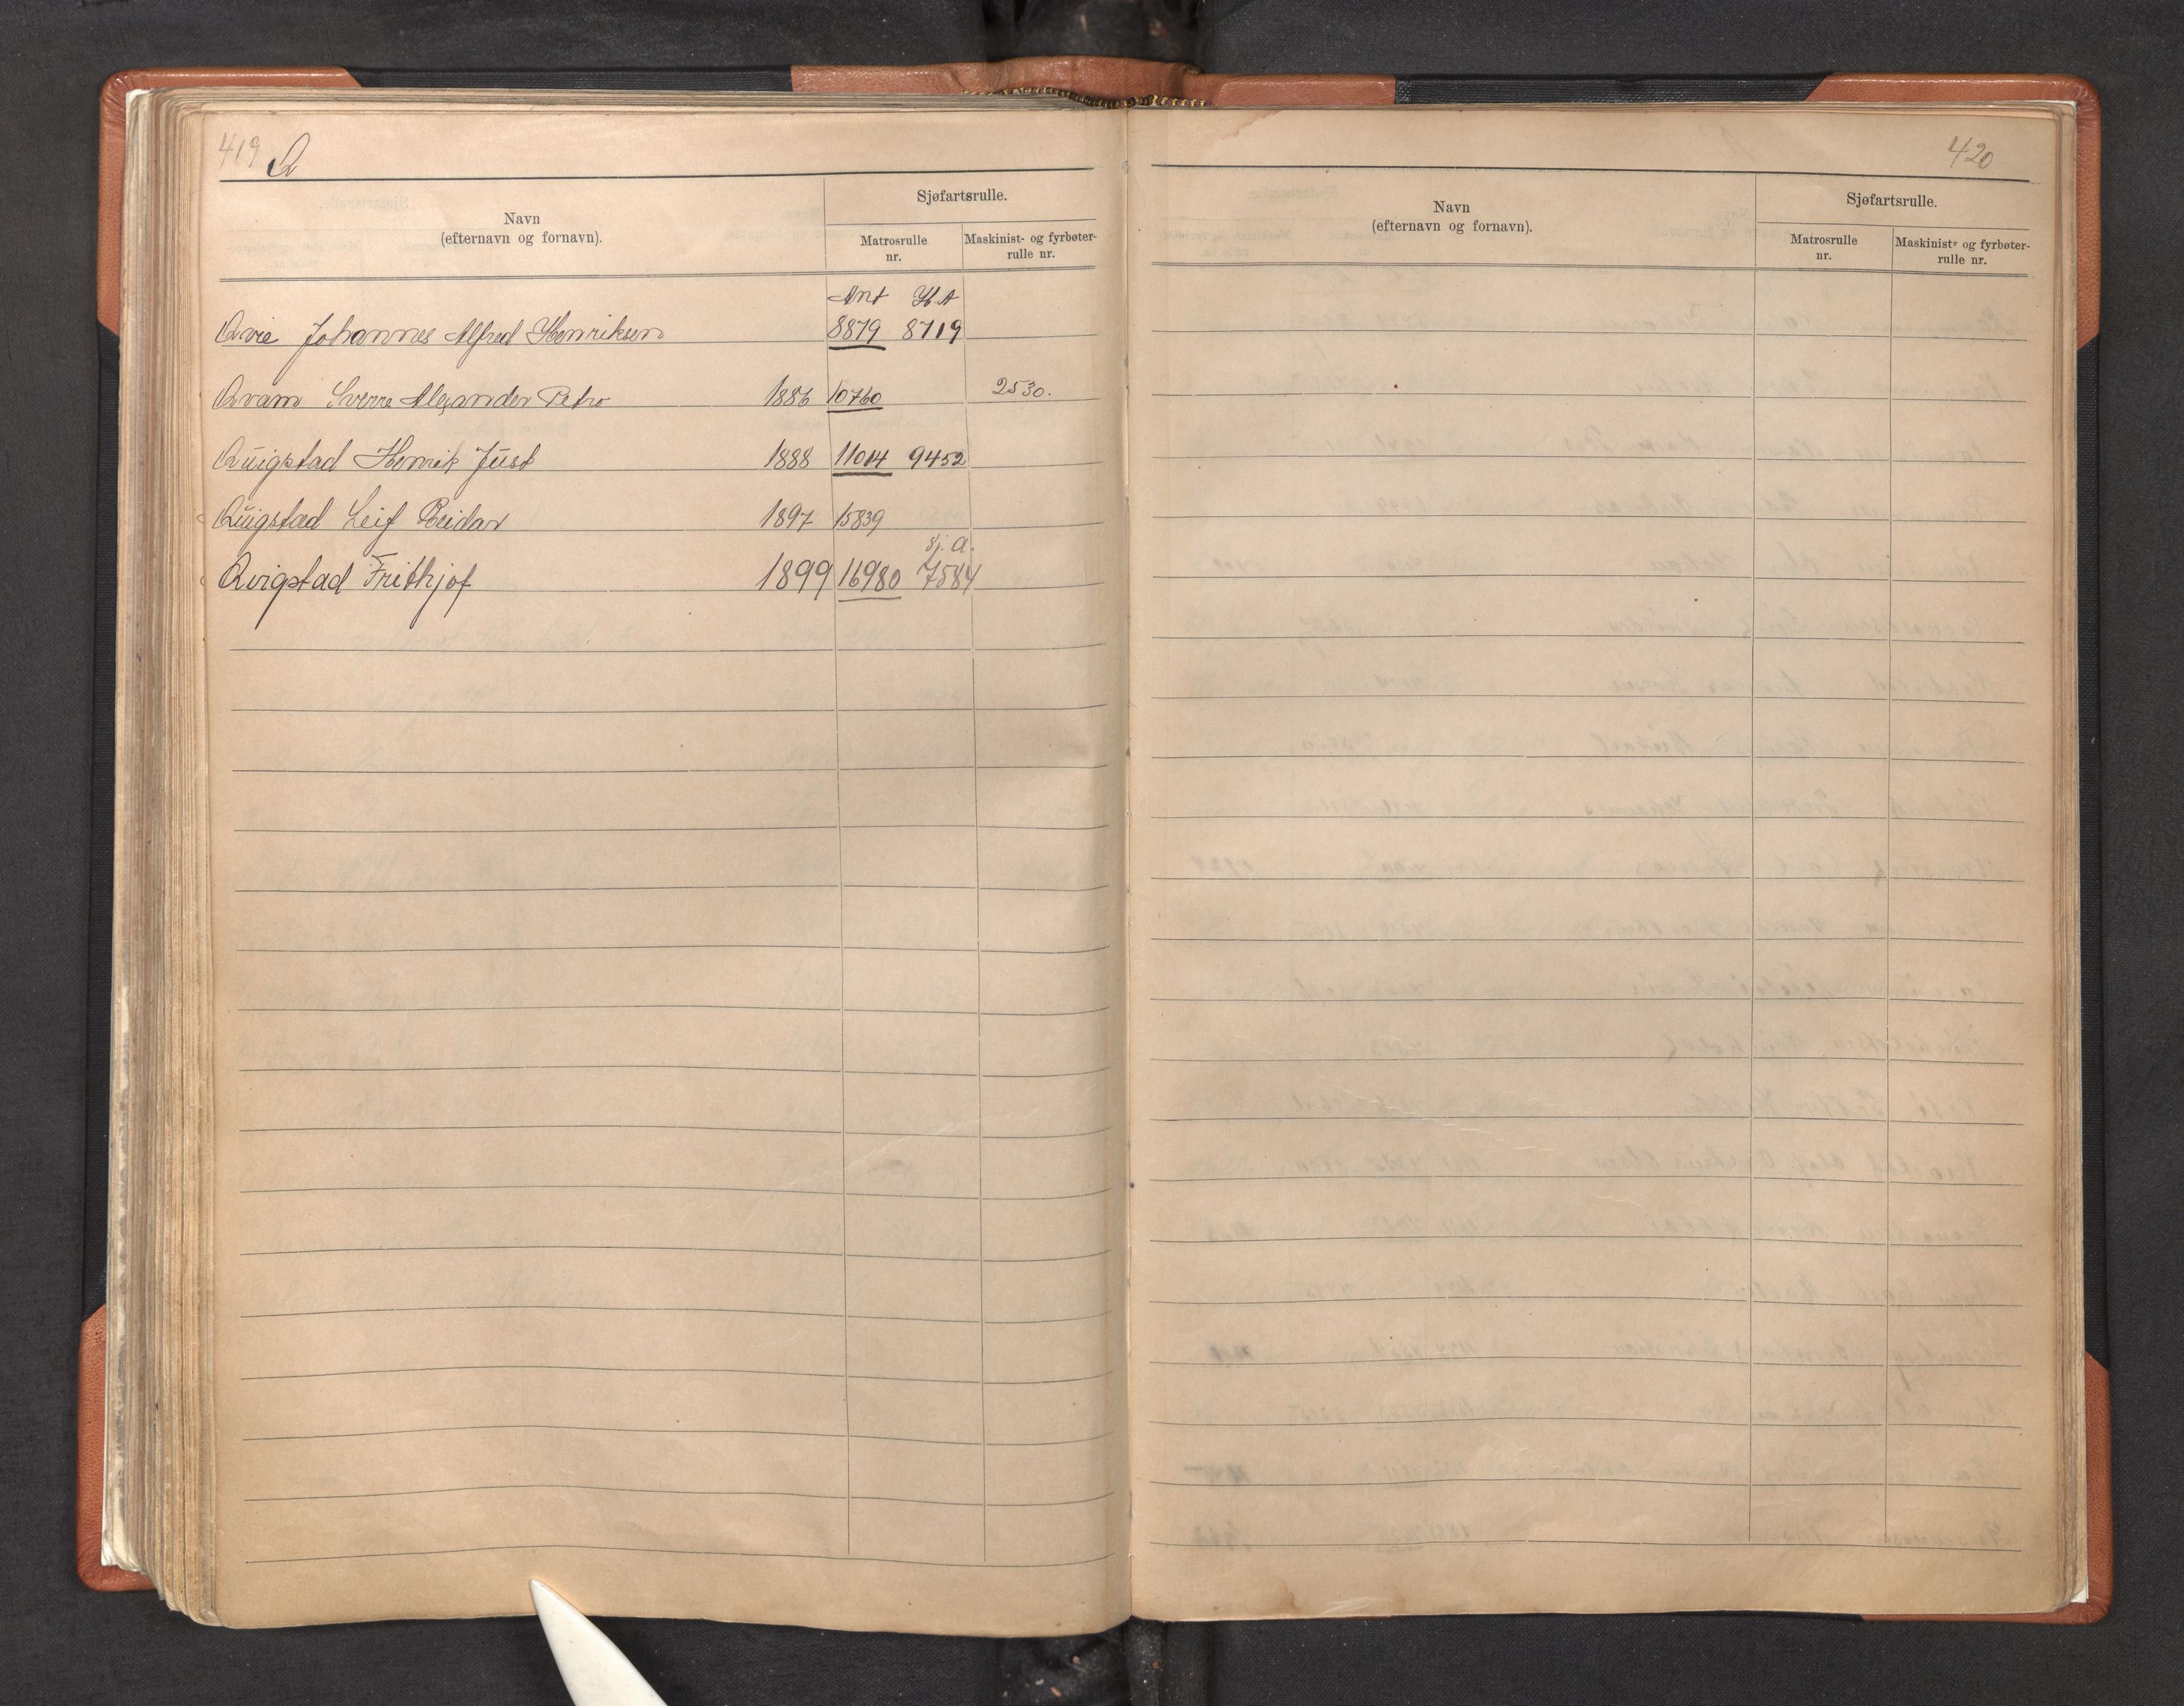 419 Q
Navn
(efternavn og fornavn).
Sjøfartsrulle.
Matrosrulle
nr.
Maskinist- og fyrbøter-
rulle nr.
Ant H A
Qvie Johannes Alfred Henriksen 8879 8719
Qvam Sverre Alexander Petro 1886 10760 2530.
Quigstad Henrik Just 1888 11014 9452
Quigstad Leif Reidar 1897 15839
Sj. A.
Qvigstad Frithjof 1899 16980 7584
420
Navn
(efternavn og fornavn).
Sjøfartsrulle.
Matrosrulle
nr.
Maskinist- og fyrbøter-
rulle nr.